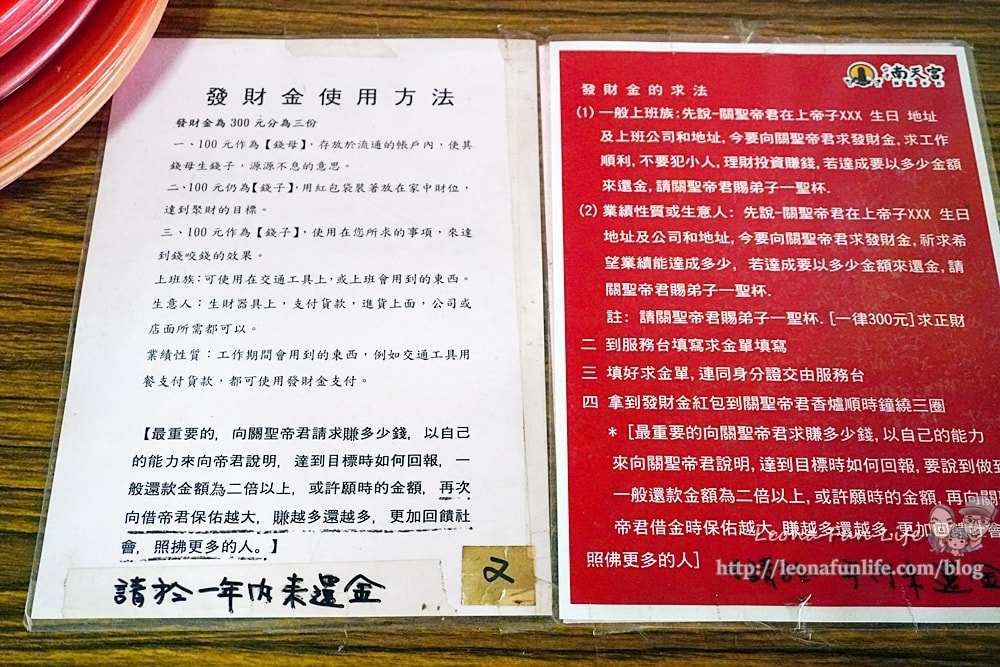 發財金使用方法
發財金為300元分為三份
一、100元作為【錢母】,存放於流通的帳戶內,使其
錢母生錢子,源源不息的意思。
二、100元仍為【錢子】,用紅包袋裝著放在家中財位,
達到聚財的目標。
三、100元作為【錢子】,使用在您所求的事項,來達
到錢咬錢的效果。
上班族:可使用在交通工具上,或上班會用到的東西。
生意人:生財器具上,支付貨款,進貨上面,公司或
店面所需都可以。
業績性質:工作期間會用到的東西,例如交通工具用
餐支付貨款,都可使用發財金支付。
【最重要的,向關聖帝君請求賺多少錢,以自己
的能力來向帝君說明,達到目標時如何回報,一
般還款金額為二倍以上,或許願時的金額,再次
向借帝君保佑越大,賺越多還越多,更加回饋社
會,照拂更多的人。】
請於一年內来還金
又
滿天宮
發財金的求法
(1) 一般上班族:先說-關聖帝君在上帝子XXX 生日 地址
及上班公司和地址,今要向關聖帝君求發財金,求工作
順利,不要犯小人,理財投資賺錢,若達成要以多少金額
來還金,請關聖帝君賜弟子一聖杯.
(2) 業績性質或生意人: 先說-關聖帝君在上帝子XXX 生日
地址及公司和地址,今要向關聖帝君求發財金,祈求希
望業績能達成多少, 若達成要以多少金額來還金,請
關聖帝君賜弟子一聖杯.
註: 請關聖帝君賜弟子一聖杯.[一律300元]求正財
二 到服務台填寫求金單填寫
三 填好求金單,連同身分證交由服務台
四 拿到發財金紅包到關聖帝君香爐順時鐘繞三圈
*[最重要的向關聖帝君求賺多少錢,以自己的能力
來向關聖帝君說明,達到目標時如何回報,要說到做到
一般還款金額為二倍以上,或許願時的金額,再向關
帝君借金時保佑越大,賺越多還越多,更加回饋
會
照佛更多的人]
Leona Fun Life
http://leonafunlife.com/blog